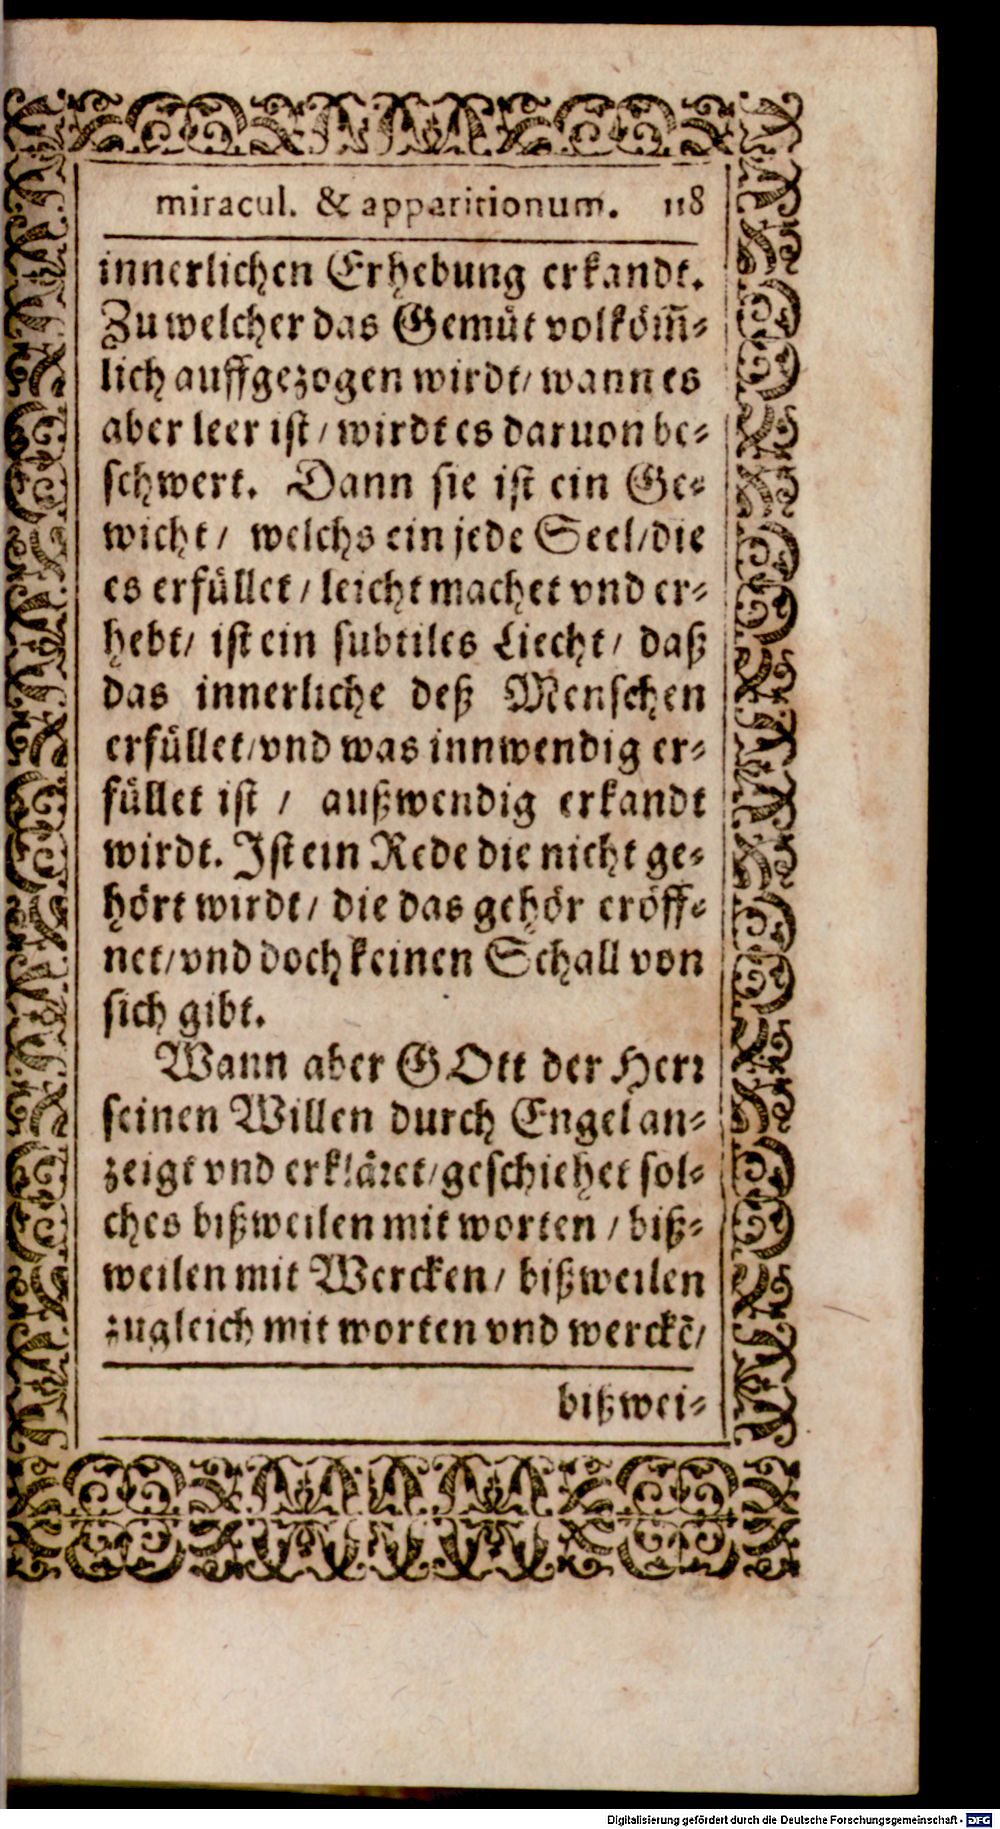 miracul. & apparitionum. 118
innerlichen Erhebung erkandt.
Zu welcher das Gemüt volköm̃-
lich auffgezogen wirdt/ wann es
aber leer ist/ wirdt es daruon be-
schwert. Dann sie ist ein Ge-
wicht/ welchs ein jede Seel/die
es erfüllet/ leicht machet vnd er-
hebt/ ist ein subtiles Liecht/ daß
das innerliche deß Menschen
erfüllet/vnd was innwendig er-
füllet ist / außwendig erkandt
wirdt. Ist ein Rede die nicht ge-
hört wirdt/ die das gehör eröff-
net/vnd doch keinen Schall von
sich gibt.
Wann aber GOtt der Herr
seinen Willen durch Engel an-
zeigt vnd erkläret/geschiehet sol-
ches bißweilen mit worten / biß-
weilen mit Wercken/ bißweilen
zugleich mit worten vnd werckẽ/
bißwei-
Digitalisierung gefördert durch die Deutsche Forschungsgemeinschaft - DFG